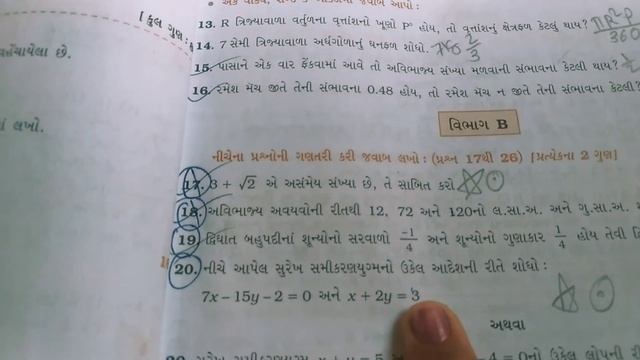 [ કુલ ગુણ :
13. R ત્રિજ્યાવાળા વર્તુળના વૃત્તાંશનો ખૂણો P° હોય, તો વૃત્તાંશનું ક્ષેત્રફળ કેટલું થાય? πR²P/360
14. 7 સેમી ત્રિજ્યાવાળા અર્ધગોળાનું ઘનફળ શોધો.
15. પાસાને એક વાર ફેંકવામાં આવે તો અવિભાજ્ય સંખ્યા મળવાની સંભાવના કેટલી થાય? 1/2
16. રમેશ મૅચ જીતે તેની સંભાવના 0.48 હોય, તો રમેશ મૅચ ન જીતે તેની સંભાવના કેટલી?
લખો.
વિભાગ B
નીચેના પ્રશ્નોની ગણતરી કરી જવાબ લખો : (પ્રશ્ન 17થી 26) [પ્રત્યેકના 2 ગુણ]
17. 3 + √2 એ અસંમેય સંખ્યા છે, તે સાબિત કરો
18. અવિભાજ્ય અવયવોની રીતથી 12, 72 અને 120નો લ.સા.અ. અને ગુ.સા.અ.
19. દ્વિઘાત બહુપદીનાં શૂન્યોનો સરવાળો -1/4 અને શૂન્યોનો ગુણાકાર 1/4 હોય તેવી
20. નીચે આપેલ સુરેખ સમીકરણયુગ્મનો ઉકેલ આદેશની રીતે શોધો :
7x – 15y – 2 = 0 અને x + 2y = 3
અથવા